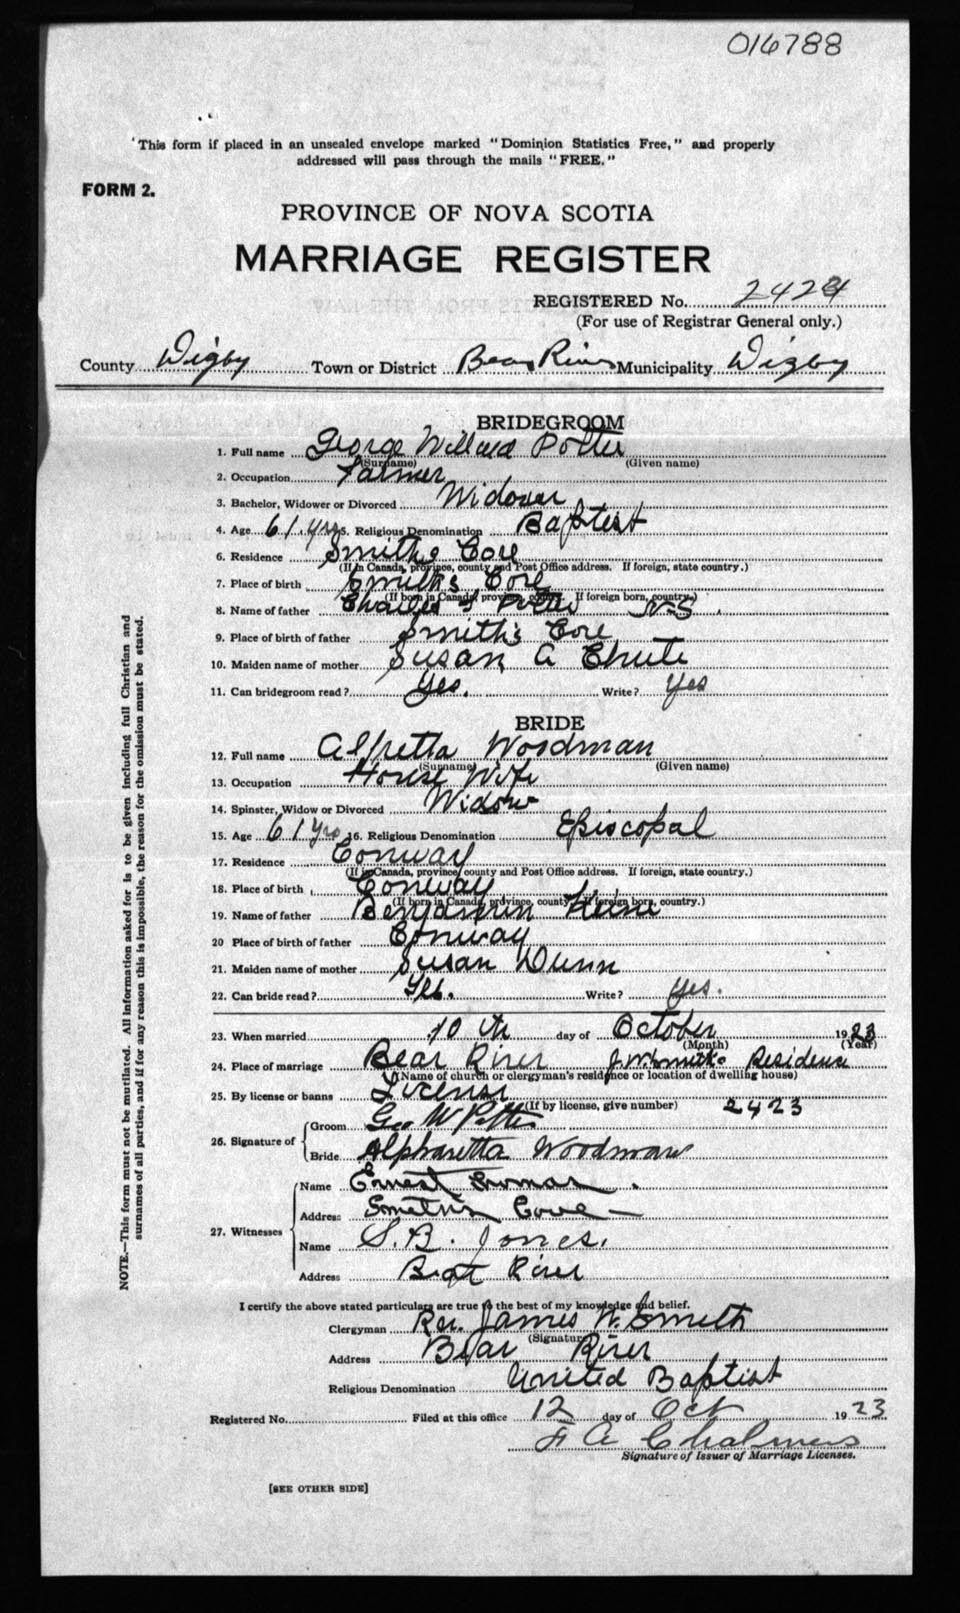 016788
"This form if placed in an unsealed envelope marked "Dominion Statistics Free," and properly
addressed will pass through the mails "FREE."
FORM 2.
PROVINCE OF NOVA SCOTIA
MARRIAGE REGISTER
REGISTERED No. 2424
(For use of Registrar General only.)
County Digby Town or District Bear River Municipality Digby
BRIDEGROOM
1. Full name George Willard Potter
(Surname) (Given name)
2. Occupation Farmer
3. Bachelor, Widower or Divorced Widower
4. Age 61 yrs 5. Religious Denomination Baptist
6. Residence Smiths Cove
(If in Canada, province, county and Post Office address. If foreign, state country.)
7. Place of birth Smiths Cove
(If born in Canada, province, county. If foreign born, country.)
8. Name of father Charles Potter N-S
9. Place of birth of father Smiths Cove
10. Maiden name of mother Susan A Chute
11. Can bridegroom read? Yes. Write? Yes
BRIDE
12. Full name Alfretta Woodman
(Surname) (Given name)
13. Occupation House Wife
14. Spinster, Widow or Divorced Widow
15. Age 61 yrs 16. Religious Denomination Episcopal
17. Residence Conway
(If in Canada, province, county and Post Office address. If foreign, state country.)
18. Place of birth Conway
(If born in Canada, province, county. If foreign born, country.)
19. Name of father Benjamin
20 Place of birth of father Conway
21. Maiden name of mother Susan Dunn
22. Can bride read? Yes. Write? Yes.
23. When married 10th day of October 1923
(Month) (Year)
24. Place of marriage Bear River J. W. Smiths Residence
(Name of church or clergyman's residence or location of dwelling house)
25. By license or banns License
(If by license, give number) 2423
26. Signature of Groom Geo W Potter
Bride Alpharetta Woodman
27. Witnesses Name Ernest
Address Cove
Name S. B. Jones.
Address Bear River
I certify the above stated particulars are true to the best of my knowledge and belief.
Clergyman Rev. James W. Smith
(Signature)
Address Bear River
Religious Denomination United Baptist
Registered No. Filed at this office 12 day of Oct 1923
F A Chalmers
Signature of Issuer of Marriage Licenses.
[SEE OTHER SIDE]
NOTE.—This form must not be mutilated. All information asked for is to be given including full Christian and
surnames of all parties, and if for any reason this is impossible, the reason for the omission must be stated.